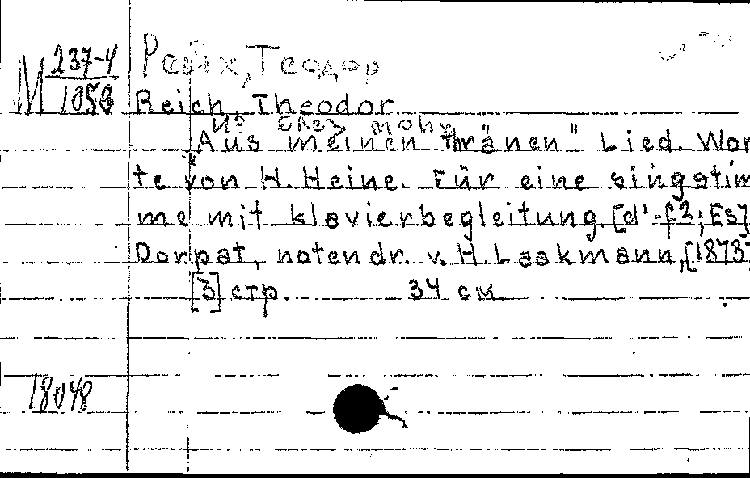 М 237-4
1058
Рейх, Теодор
Reich, Theodor
Из слез моих
"Aus meinen thränen" Lied. Wor
te von H. Heine. Für eine singstim
me mit klavierbegleitung. [d'-f2; Es]
Dorpat, notendr. v. H. Laakmann, [1873
[3] стр. 34 см
18048